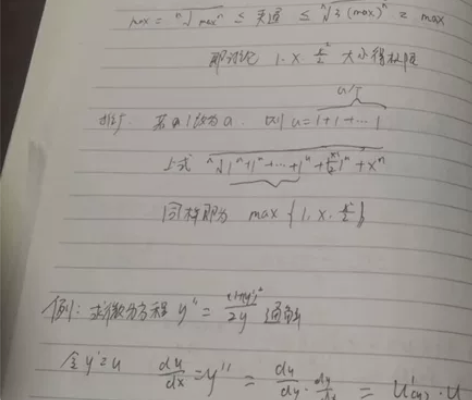 max = ⁿ√maxⁿ ≤ 夹逼 ≤ ⁿ√3(max)ⁿ = max
即讨论 1. x. x²/2 大小得极限
a个
推广 若 1 改为 a. 则 a = 1+1+…1
上式 ⁿ√1ⁿ+1ⁿ+…+1ⁿ+(x²/2)ⁿ+xⁿ
同样即为 max {1, x, x²/2}
例: 求微分方程 y'' = 1+(y')²/2y 通解
令 y'=u du/dx = y'' = du/dy · dy/dx = u'(y) · u